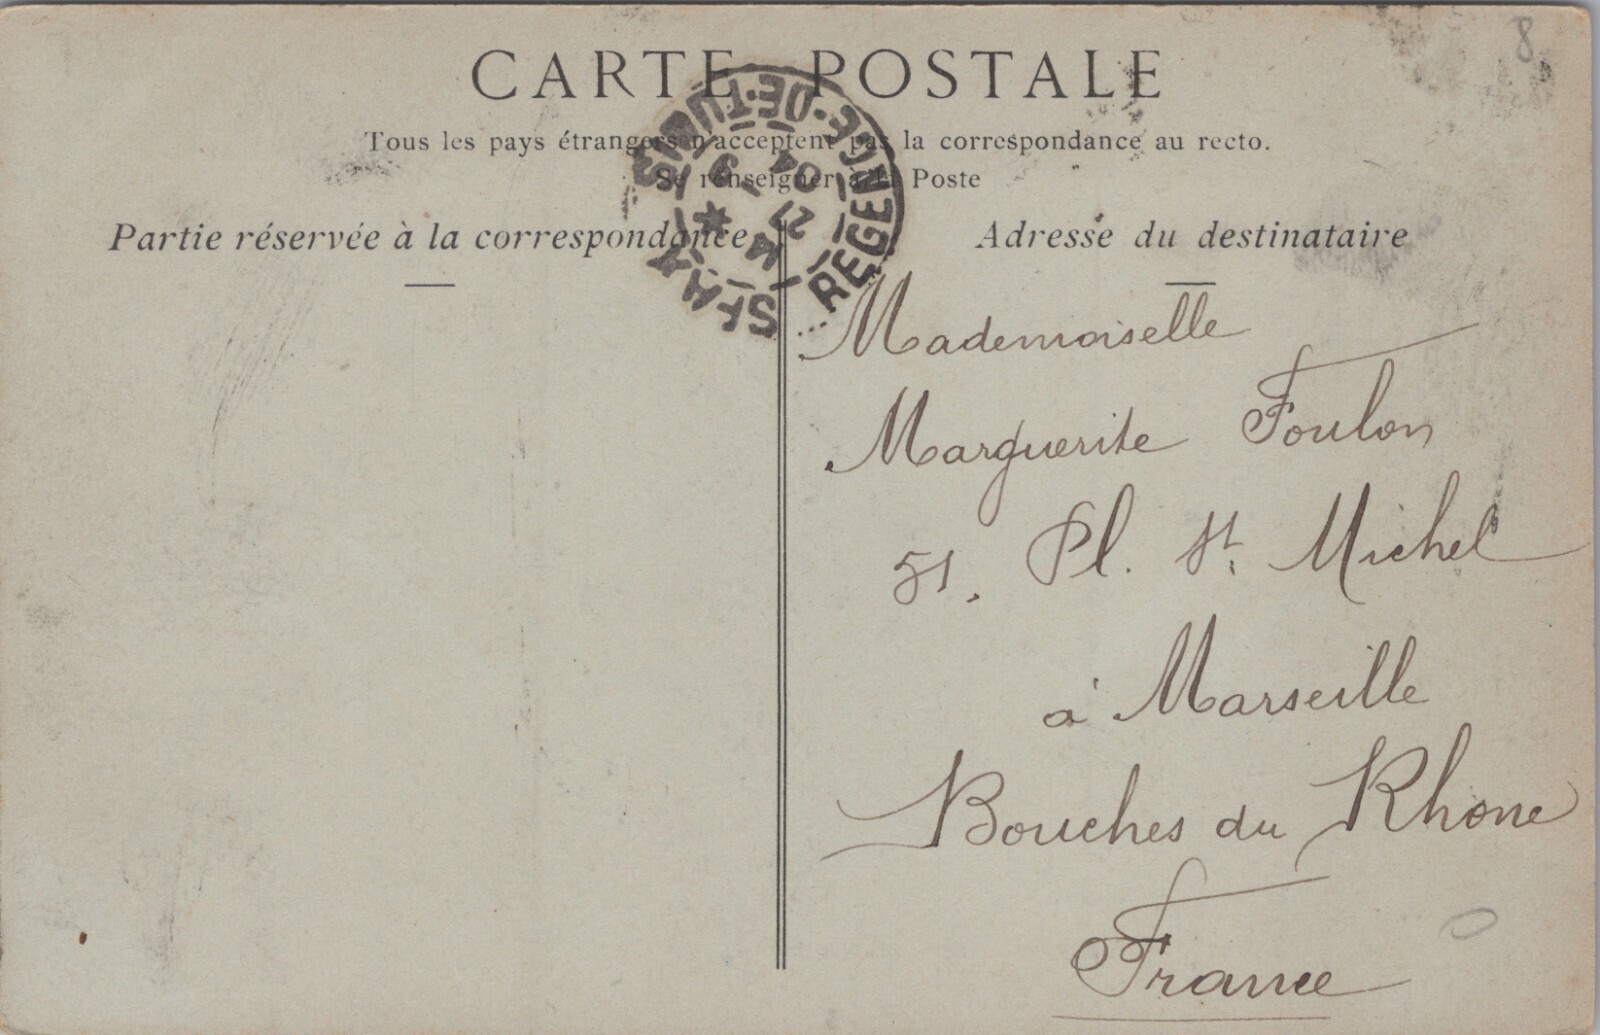 8
CARTE POSTALE
Tous les pays étrangers n'acceptent pas la correspondance au recto.
Se renseigner à la Poste
SFAX * REGENCE-DE-TUNIS
21
-9
04
Partie réservée à la correspondance
Adresse du destinataire
Mademoiselle
Marguerite Foulon
51. Pl. St. Michel
à Marseille
Bouches du Rhone
France